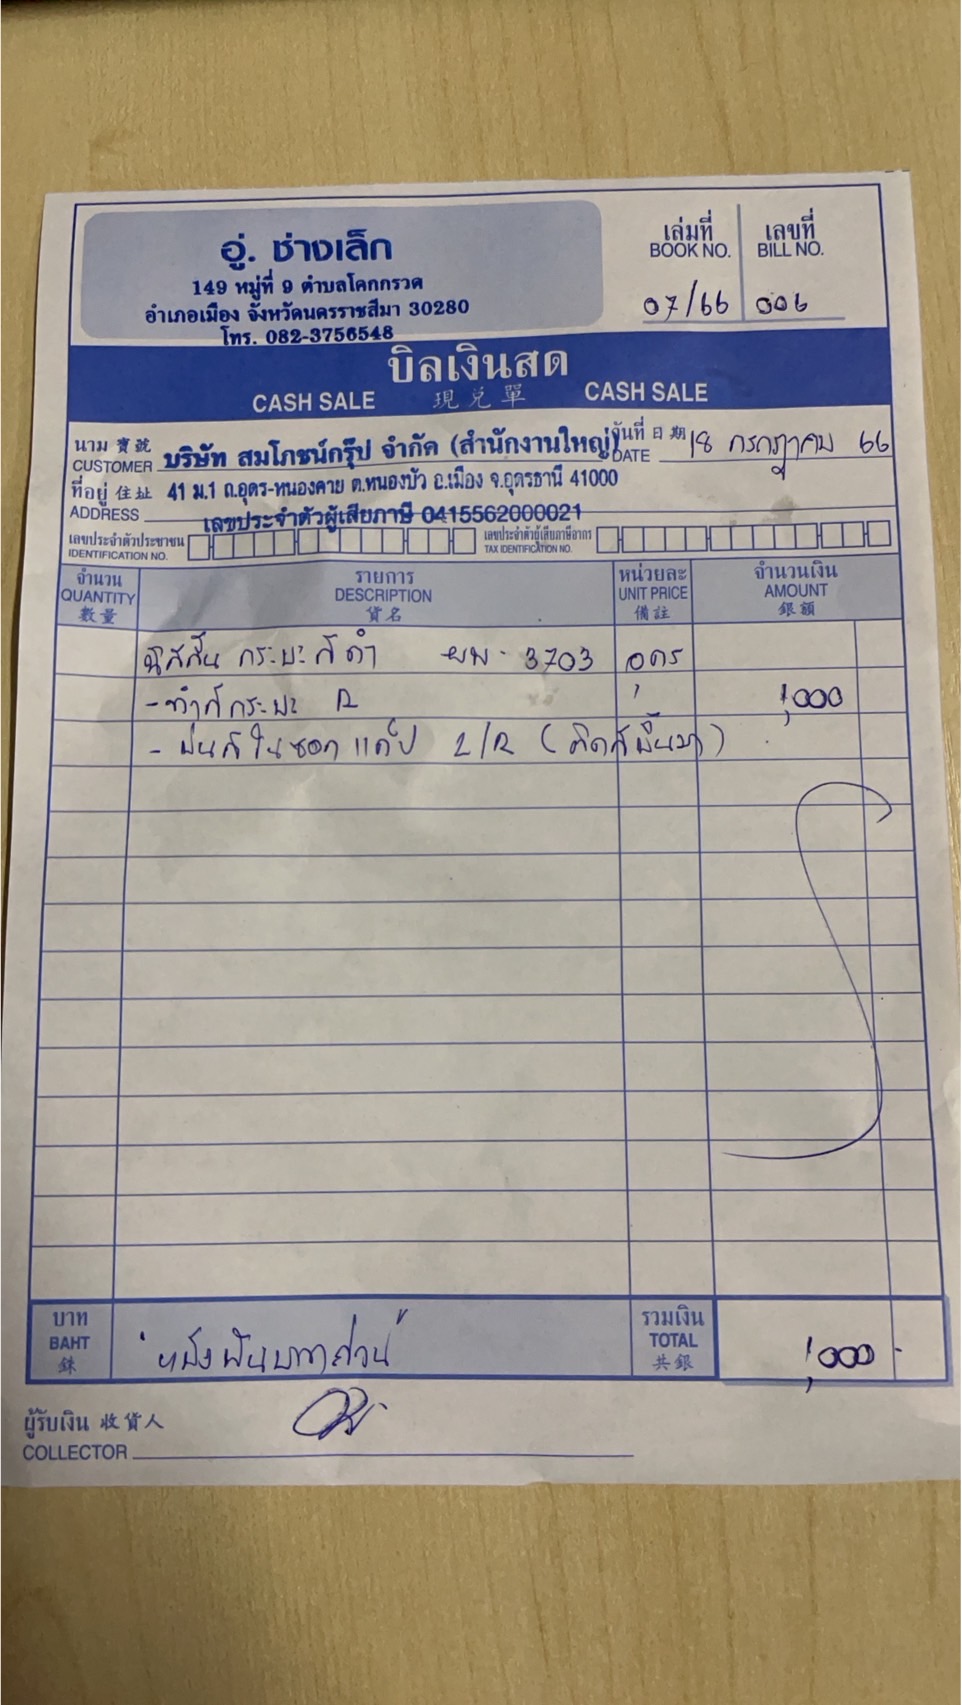 อู่. ช่างเล็ก
149 หมู่ที่ 9 ตำบลโคกกรวด
อำเภอเมือง จังหวัดนครราชสีมา 30280
โทร. 082-3756548
เล่มที่ เลขที่
BOOK NO. BILL NO.
07/66 006
บิลเงินสด
CASH SALE 現兌單 CASH SALE
นาม 寶號 วันที่ 日期 18 กรกฎาคม 66
CUSTOMER บริษัท สมโภชน์กรุ๊ป จำกัด (สำนักงานใหญ่) DATE
ที่อยู่ 住址 41 ม.1 ถ.อุดร-หนองคาย ต.หนองบัว อ.เมือง จ.อุดรธานี 41000
ADDRESS เลขประจำตัวผู้เสียภาษี 0415562000021
เลขประจำตัวประชาชน เลขประจำตัวผู้เสียภาษีอากร
IDENTIFICATION NO. TAX IDENTIFICATION NO.
จำนวน รายการ หน่วยละ จำนวนเงิน
QUANTITY DESCRIPTION UNIT PRICE AMOUNT
數量 貨名 備註 銀額
นิสสัน กระบะสีดำ ผผ - 3703 อุดร
- ทำสีกระบะ R 1,000
- พ่นสีในซอกแค๊ป L/R (
บาท รวมเงิน
BAHT "หนึ่งพันบาทถ้วน" TOTAL 1,000 -
銖 共銀
ผู้รับเงิน 收貨人
COLLECTOR